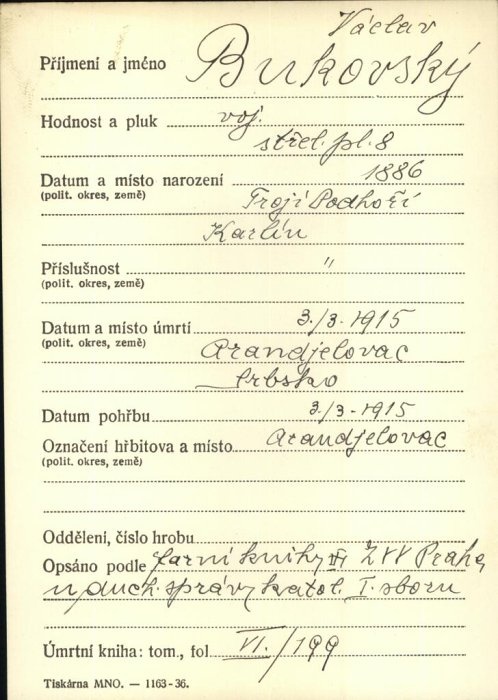 Václav
Příjmení a jméno Bukovský
Hodnost a pluk voj.
střel. pl. 8
Datum a místo narození 1886
(polit. okres, země) Trojí Podhoří
Karlín
Příslušnost "
(polit. okres, země)
Datum a místo úmrtí 3./3. 1915
(polit. okres, země) Arandjelovac
Srbsko
Datum pohřbu 3./3. 1915
Označení hřbitova a místo Arandjelovac
(polit. okres, země)
Oddělení, číslo hrobu
Opsáno podle farní knihy ZVV Praha,
duch. správy katol. I. sboru
Úmrtní kniha: tom., fol. VI./199
Tiskárna MNO. — 1163-36.